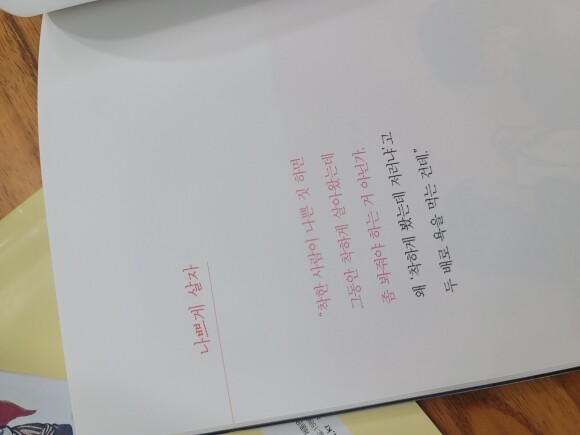 나쁘게 살자
"착한 사람이 나쁜 짓 하면
그동안 착하게 살아왔는데
좀 봐줘야 하는 거 아닌가.
왜 '착하게 봤는데 저러냐'고
두 배로 욕을 먹는 건데."